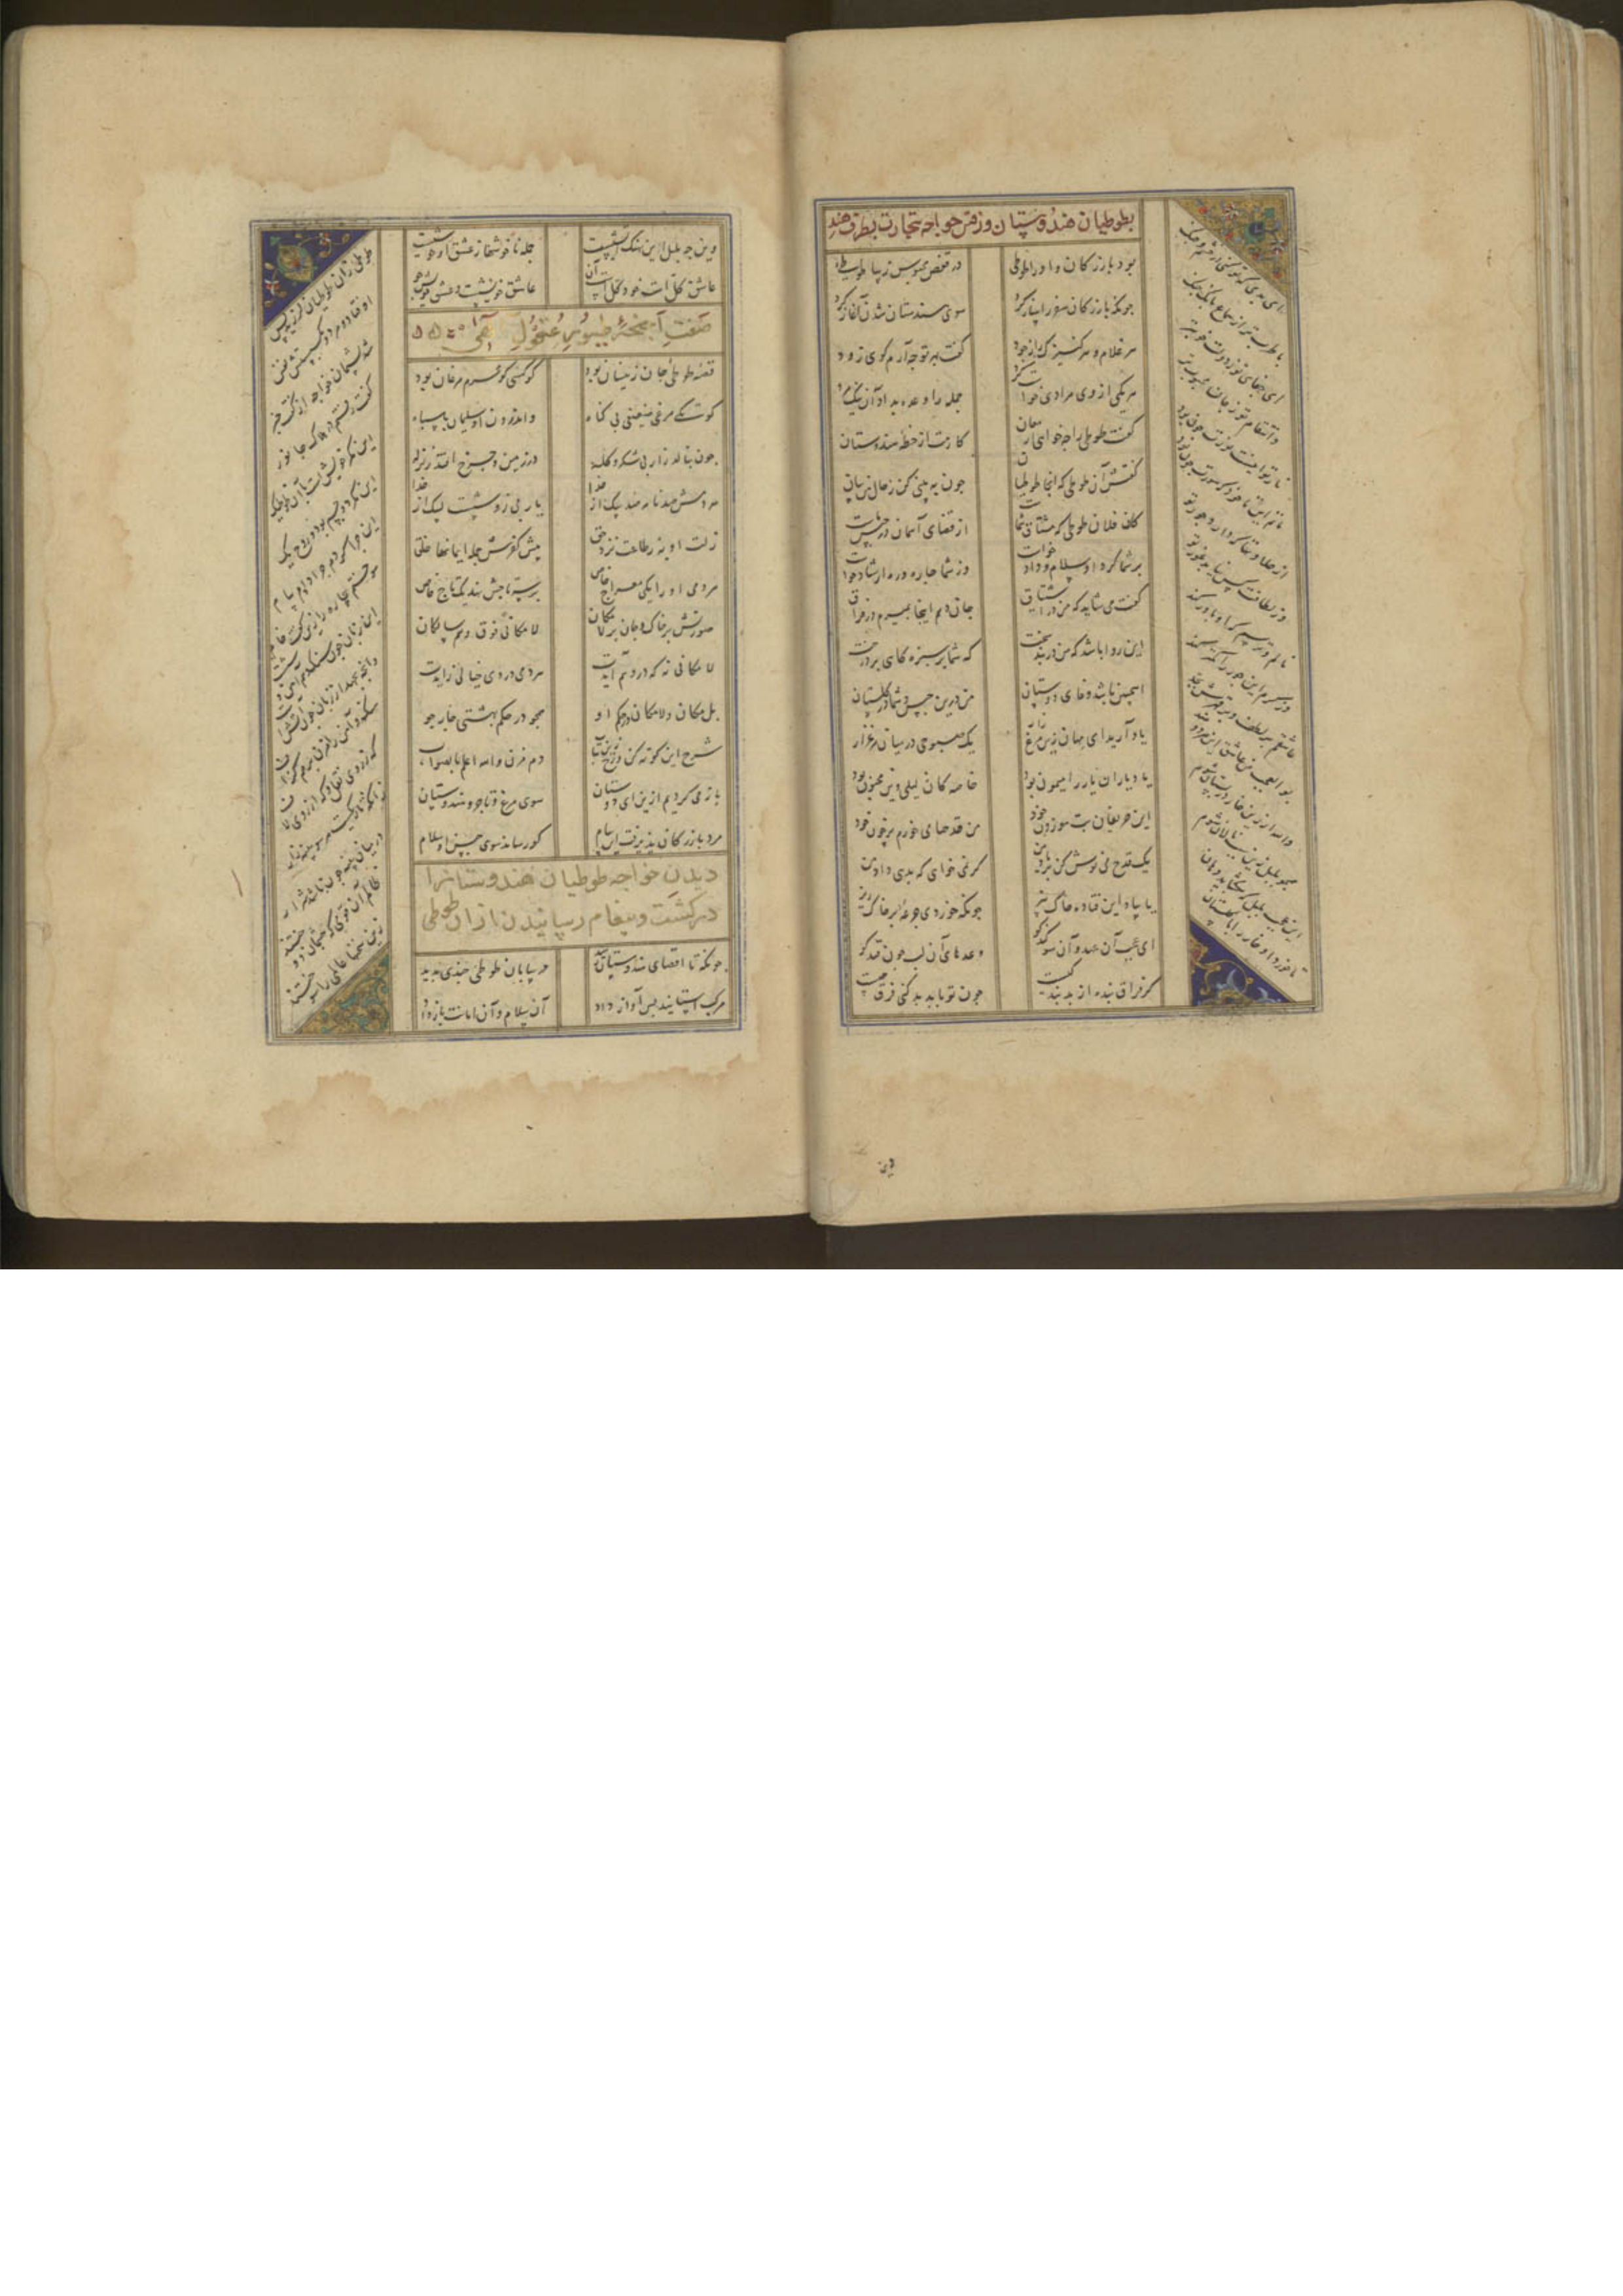 بطوطیان هندوستان و رفتن خواجه بتجارت بطرف هند
بود بازرکان و اورا طوطی در قفص محبوس زیبا طوطیء
جونکه بازرکان سفر را ساز کرد سوی هندستان شدن آغاز کرد
هر غلام و هر کنیزک را ز جود کفت بهر تو چه آرم کوی زود
هر یکی از وی مرادی خواست کرد جمله را وعده بداد آن نیک مرد
کفت طوطی را چه خواهی ارمغان کارمت از خطهٔ هندوستان
کفتش آن طوطی که آنجا طوطیان جون به بینی کن ز حال من بیان
کان فلان طوطی که مشتاق شماست از قضای آسمان در حبس ماست
بر شما کرد او سلام و داد خواست وز شما چاره و ره ارشاد خواست
کفت می شاید که من در اشتیاق جان دهم اینجا بمیرم در فراق
این روا باشد که من در بند سخت که شما بر سبزه کاهی بر درخت
این جنین باشد وفای دوستان من درین حبس و شما در کلستان
یاد آرید ای مهان زین مرغ زار یک صبوحی در میان مرغزار
یاد یاران یار را میمون بود خاصه کان لیلی و این مجنون بود
ای حریفان بت موزون خود من قدحها می خورم پر خون خود
یک قدح می نوش کن بر یاد من کر نمی خواهی که بدهی داد من
یا بیاد این فتاده خاک بیز جونکه خوردی جرعهٔ بر خاک ریز
ای عجب آن عهد و آن سوکند کو وعدهای آن لب جون قند کو
کر فراق بنده از بد بندکیست جون تو با بد بد کنی فرق جیست
ای بدی که تو کنی در خشم و جنک
با طرب تر از سماع و بانک جنک
ای جفای تو ز دولت خوبتر
و انتقام تو ز جان محبوب تر
نار تو اینست نورت جون بود
ماتم این تا خود که سورت جون بود
از حلاوتها که دارد جور تو
وز لطافت کس نیابد غور تو
نالم و ترسم که او باور کند
وز کرم این جور را کمتر کند
عاشقم بر لطف و بر قهرش بجد
بو العجب من عاشق این هر دو ضد
والله ار زین خار در بستان شوم
همجو بلبل زین سبب نالان شوم
این عجب بلبل که بکشاید دهان
تا خورد او خار را با کلستان
این
وین جه بلبل این نهنک آتشیست جمله ناخوشها ز عشق او خوشیست
عاشق کل است خود کل است آن عاشق خویشست و عشق خویش جو
صفت اجنحهٔ طیور عقول آلهی
قصهٔ طوطی جان زینسان بود کو کسی کو محرم مرغان بود
کو یکی مرغی ضعیفی بی کناه و اندرون او سلیمان با سپاه
جون بنالد زار بی شکر و کله در زمین و جرخ افتد زلزله
هر دمش صد نامه صد پیک از خدا یا ربی زو شصت لبیک از خدا
زلت او به ز طاعت نزد حق پیش کفرش جمله ایمانها خلق
هر دمی او را یکی معراج خاص بر سر تاجش نهد یک تاج خاص
صورتش بر خاک و جان بر لامکان لامکانی فوق وهم سالکان
لامکانی نه که در وهم آیدت هر دمی در وی خیالی زایدت
بل مکان و لامکان در حکم او همجو در حکم بهشتی جار جو
شرح این کوته کن و رخ زین بتاب دم مزن والله اعلم بالصواب
باز می کردیم ازین ای دوستان سوی مرغ و تاجر و هندوستان
مرد بازرکان پذیرفت این پیام کو رساند سوی جنس از وی سلام
دیدن خواجه طوطیان هندوستانرا
در کشت و پیغام رسانیدن از ان طوطی
جونکه تا اقصای هندوستان رسید در بیابان طوطی جندی بدید
مرکب استانید پس آواز داد آن سلام و آن امانت باز داد
طوطی زان طوطیان لرزید بس
اوفتاد و مرد و بکسستش نفس
شد پشیمان خواجه از کفت خبر
کفت رفتم در هلاک جانور
این مکر خویش است با آن طوطیک
این مکر دو جسم بود و روح یک
این جرا کردم جرا دادم پیام
سوختم بیچاره را زین کفت خام
این زبان جون سنک و هم آهن وشست
وانجه بجهد از زبان جون آتشست
سنک و آهن را مزن بر هم کزاف
که ز روی نقل و که از روی لاف
زانکه تاریکست و هر سو پنبه زار
در میان پنبه جون باشد شرار
ظالم آن قومی که جشمان دوختند
زین سخنها عالمی را سوختند